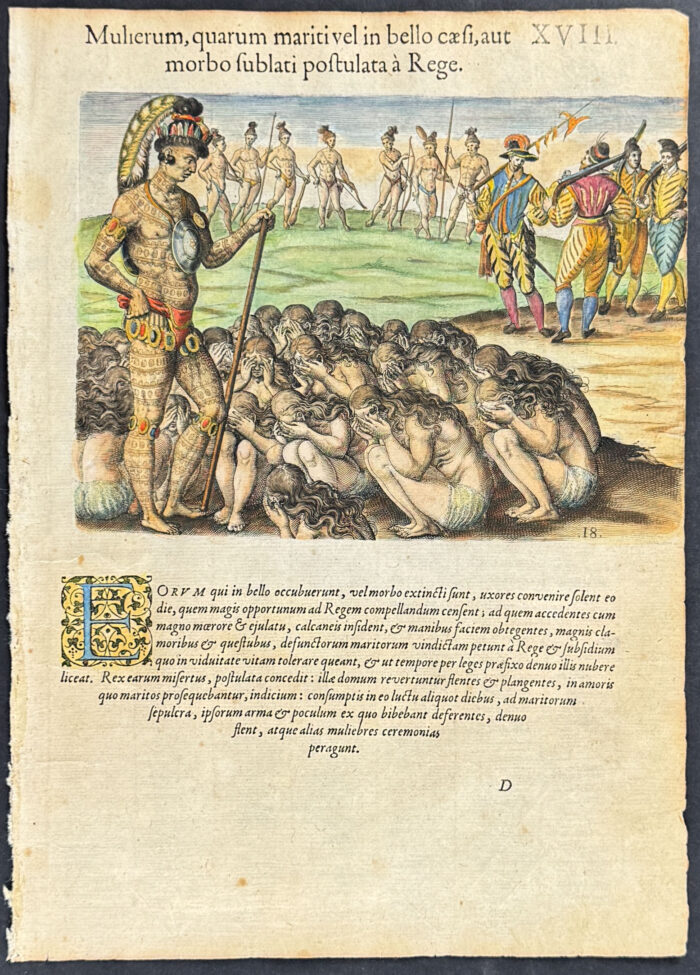 Mulierum, quarum mariti vel in bello cæsi, aut XVIII.
morbo ſublati poſtulata à Rege.
18.
EORVM qui in bello occubuerunt, vel morbo extincti ſunt, uxores convenire ſolent eo
die, quem magis opportunum ad Regem compellandum cenſent; ad quem accedentes cum
magno mœrore & ejulatu, calcaneis inſident, & manibus faciem obtegentes, magnis cla-
moribus & queſtubus, defunctorum maritorum vindictam petunt à Rege & ſubſidium
quo in viduitate vitam tolerare queant, & ut tempore per leges præfixo denuo illis nubere
liceat. Rex earum miſertus, poſtulata concedit: illæ domum revertuntur flentes & plangentes, in amoris
quo maritos proſequebantur, indicium: conſumptis in eo luctu aliquot diebus, ad maritorum
ſepulcra, ipſorum arma & poculum ex quo bibebant deferentes, denuo
flent, atque alias muliebres ceremonias
peragunt.
D